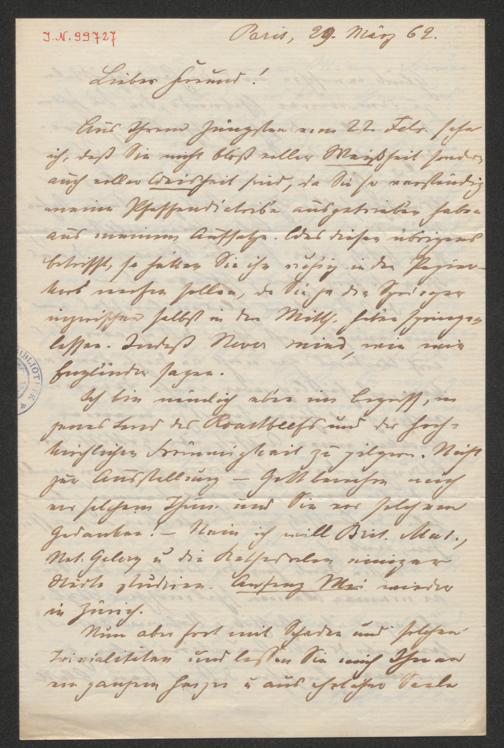 J.N. 99727
Paris, 29. März 62.
Lieber Freund!
Aus Ihrem Jüngsten vom 22. Febr. sehe
ich, daß Sie nicht bloß voller Weisheit sondern
auch voller Weisheit sind, da Sie so verständig
meine Pfaffendiatribe ausgetrieben haben
aus meinem Aufsatze. Was diesen übrigens
betrifft, so hätten Sie ihn ruhig in den Papier-
korb werfen sollen, da Sie ja die
inzwischen selbst in den Mitth. haben springen
lassen. Indeß Never mind, wie wir
Engländer sagen.
Ich bin nämlich eben im Begriff, ins
jenes Land des Roastbeefs und der hoch-
kirchlichen Frömmigkeit zu pilgern. Nicht
zur Ausstellung – Gott bewahre mich
vor solchem Thun und Sie vor solchem
Gedanken. – Nein ich will Brit. Mus.,
Nat. Gallery u die Kathedralen einiger
Städte studiren. Anfang Mai wieder
in Zürich.
Nun aber fort mit Schaden und solchen
Trivialitäten und lassen Sie mich Ihnen
von ganzem Herzen u aus ehrlicher Seele
BIBLIOTHEK